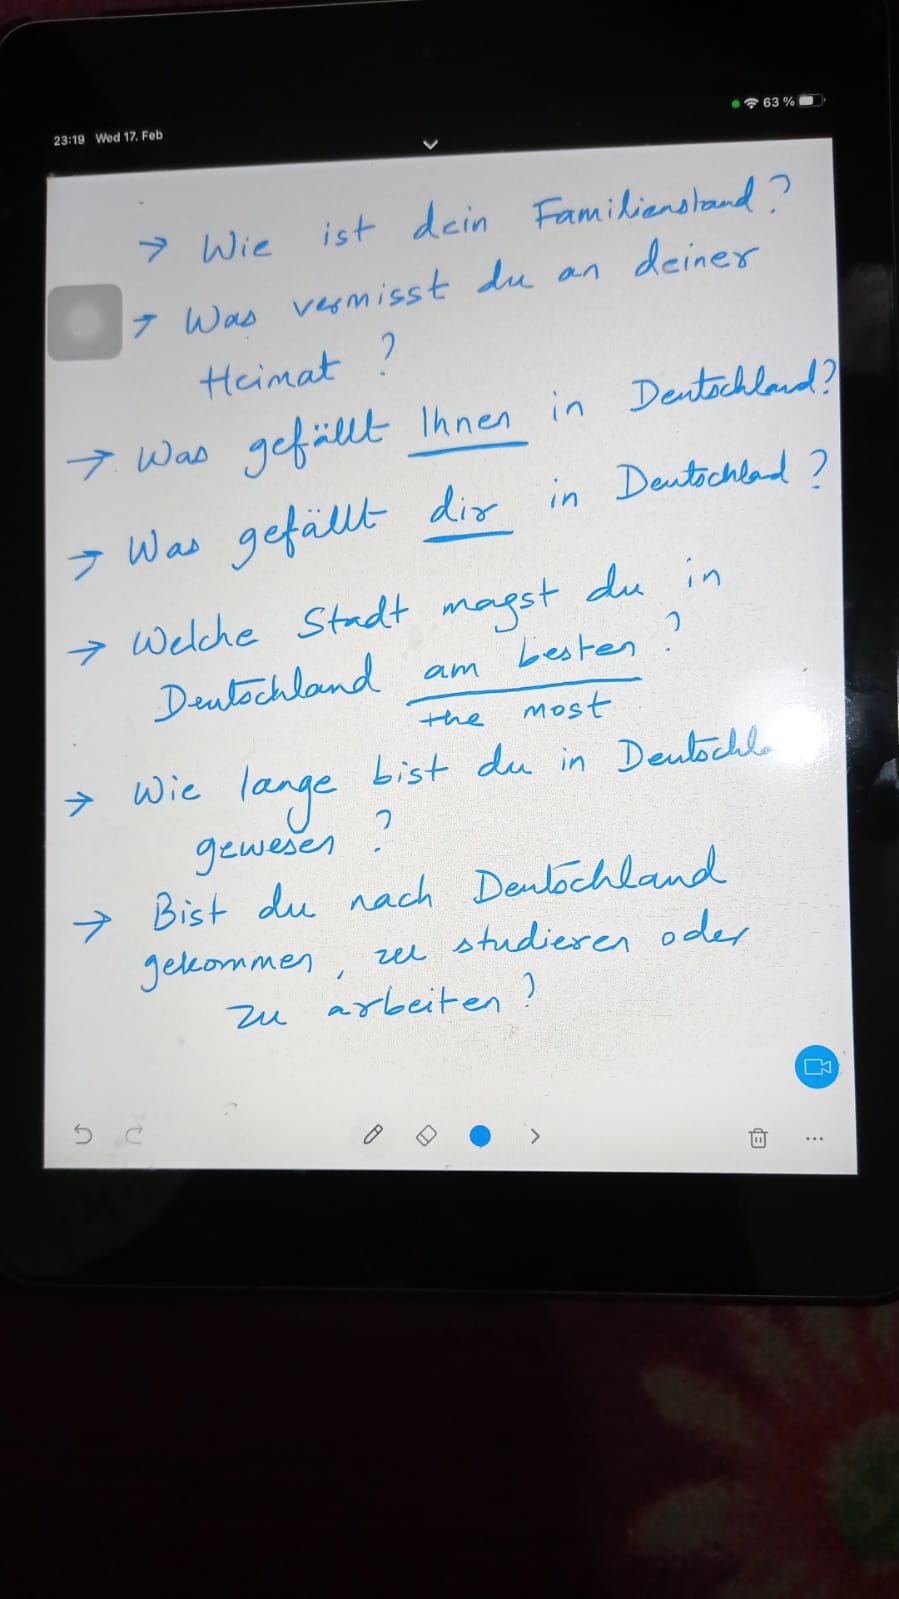 23:19 Wed 17. Feb
63 %
→ Wie ist dein Familienstand?
→ Was vermisst du an deiner
Heimat ?
→ Was gefällt Ihnen in Deutschland?
→ Was gefällt dir in Deutschlad ?
→ Welche Stadt magst du in
Deutschland am besten ?
the most
→ Wie lange bist du in
gewesen ?
→ Bist du nach Deutschland
gekommen, zu studieren oder
zu arbeiten ?